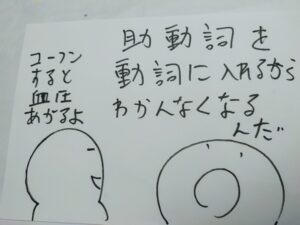 助動詞を
動詞に入れるから
わかんなくなる
んだ
コーフン
すると
血圧
あがるよ